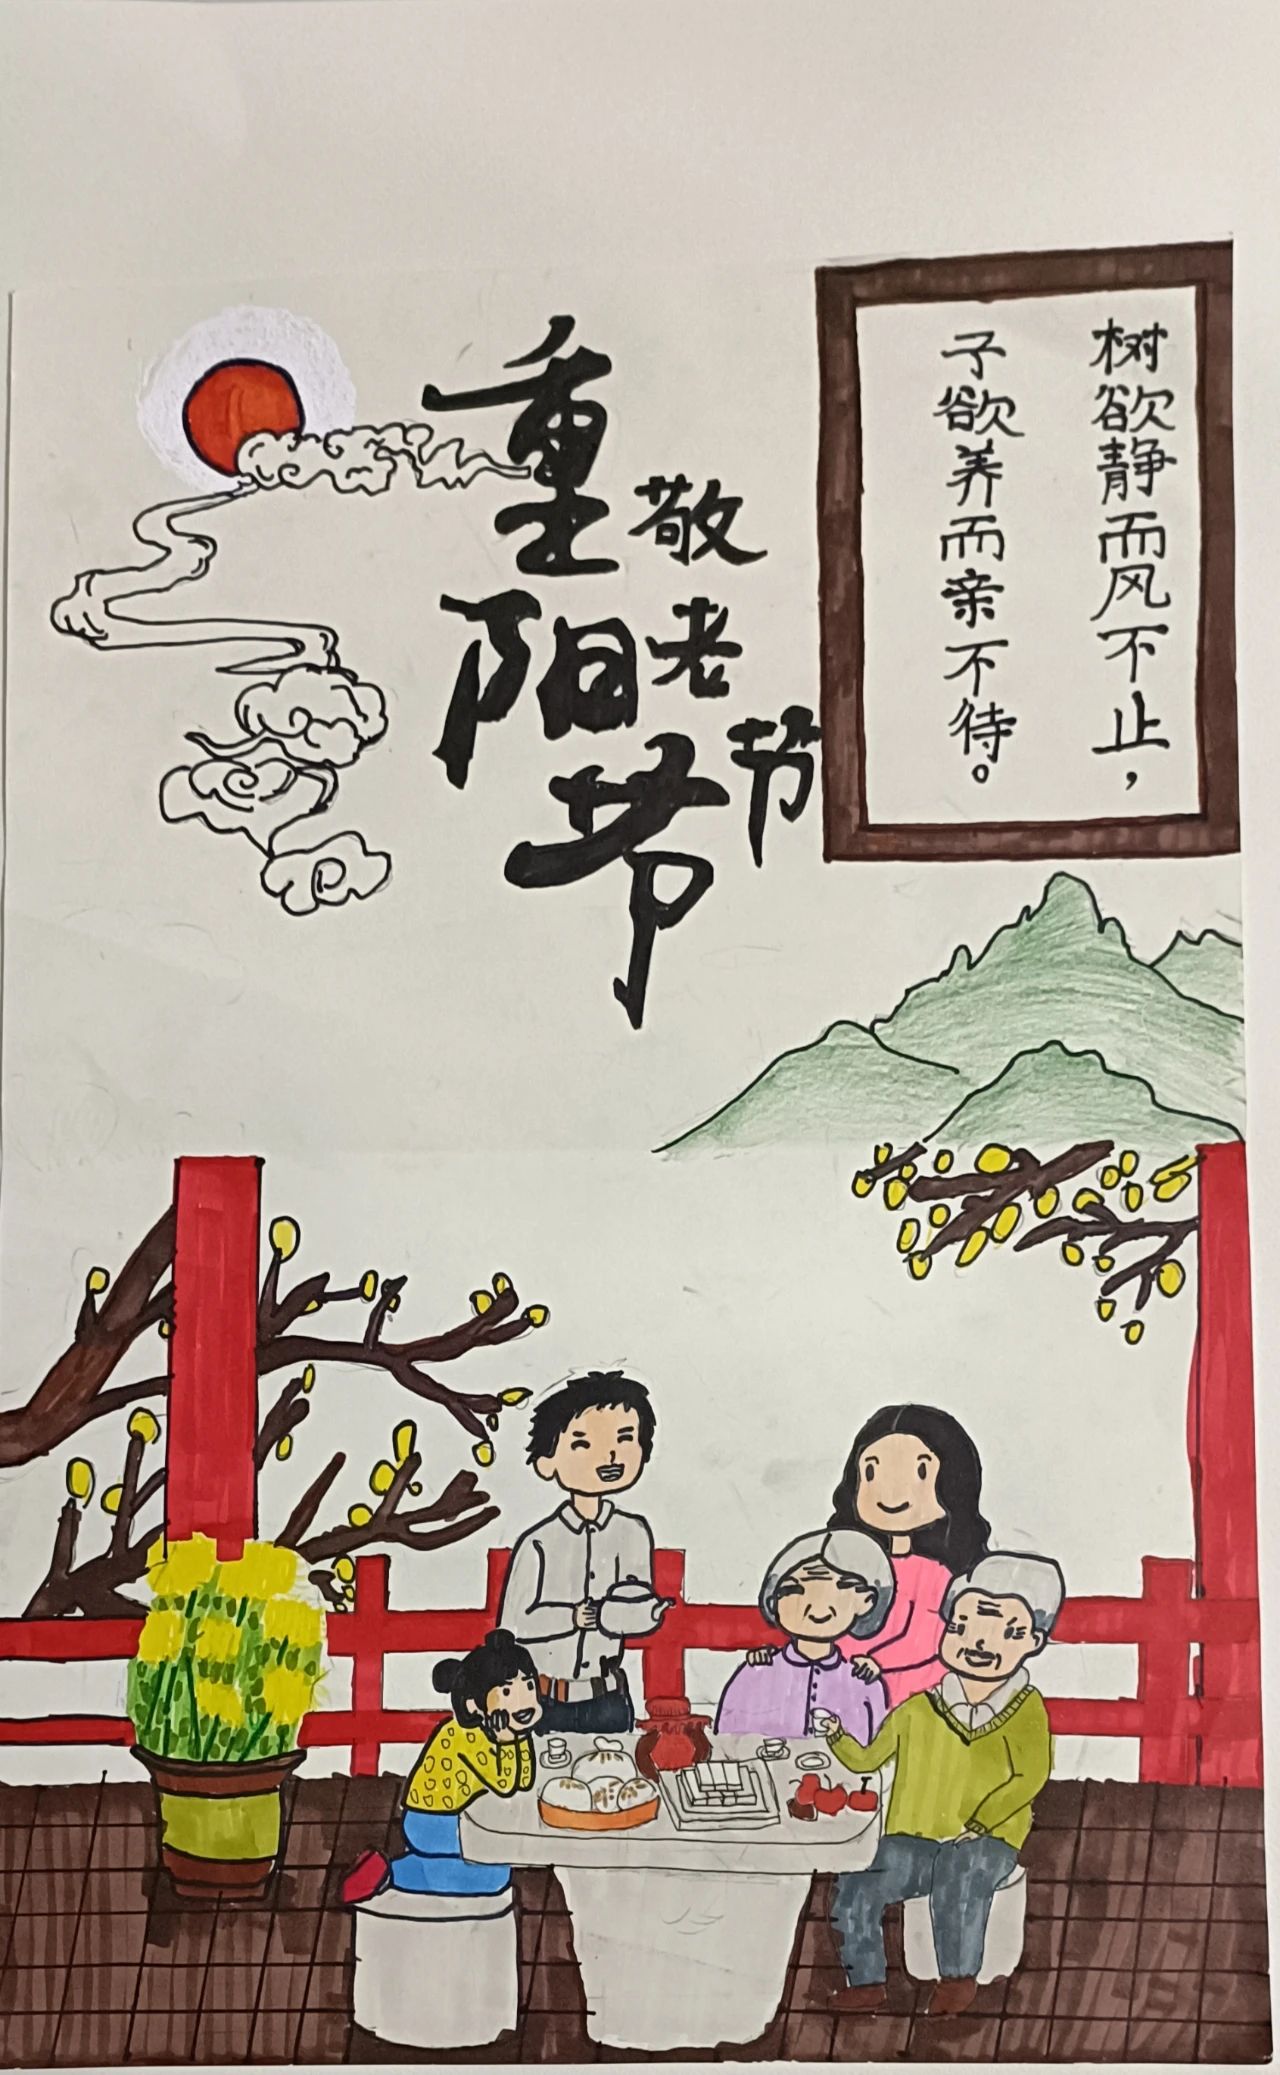 重阳节
敬老节
树欲静而风不止，
子欲养而亲不待。